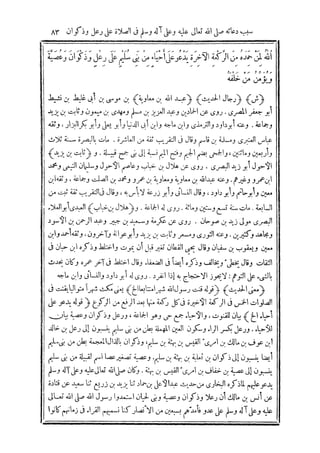 سبب دعائه صلى الله تعالى عليه وعلى آله وسلم فى الصلاة على رعل وذكوان ٨٣
اللهُ لِمَنْ حَمِدَهُ مِنَ الرَّكْعَةِ الآخِرَةِ يَدْعُو عَلَى أَحْيَاءٍ مِنْ بَنِى سُلَيْمٍ عَلَى رِعْلٍ وَذَكْوَانَ وَعُصَيَّةَ
وَيُؤَمِّنُ مَنْ خَلْفَهُ
(ش) (رجال الحديث) (عبد الله بن معاوية) بن موسى بن أبى غليظ بن نشيط
أبو جعفر المصرى. روى عن الحمادين وعبد العزيز بن مسلم ومهدى بن ميمون وثابت بن يزيد
وجماعة. وعنه أبو داود والترمذى وابن ماجه وابن أبى الدنيا وأبو يعلى وأبو بكر البزار. وثقه
عباس العنبرى ومسلمة بن قاسم وقال فى التقريب ثقة من العاشرة. مات بالبصرة سنة ثلاث
وأربعين ومائتين. والجمحى بضم الجيم وفتح الميم نسبة إلى بنى جمح قبيلة. و (ثابت بن يزيد)
الأحول أبو زيد البصرى. روى عن هلال بن خباب وعاصم الأحول وسليمان التيمى ومحمد
ابن عمرو وغيرهم. وعنه عبد الله بن معاوية وعارم بن عمرو ومحمد بن الصلت وجماعة. وثقه ابن
معين وأبو حاتم وأبو داود، وقال النسائى وأبو زرعة لا بأس به، وقال فى التقريب ثقة ثبت من
السابعة. مات سنة تسع وستين ومائة. روى له الجماعة. و (هلال بن خباب) العبدى أبو العلاء.
البصرى مولى زيد بن صوحان. روى عن عكرمة وسعيد بن جبير وعبد الرحمن بن الأسود
ومجاهد وكثيرين. وعنه الثورى ومسعر وثابت بن يزيد وأبو عوانة وآخرون. وثقه أحمد وابن
معين ويعقوب بن سفيان وقال يحيى القطان تغير قبل أن يموت واختلط وذكره ابن حبان فى
الثقات وقال يخطئ ويخالف وذكره أيضا فى الضعفاء وقال اختلط فى آخر عمره وكان يحدث
بالشىء على التوهم: لايجوز الاحتجاج به إذا انفرد. روى له أبو داود والنسائى وابن ماجه
(معنى الحديث) (قوله قنت رسول الله شهرا متتابعا الخ) يعنى مكث شهرا متواليا يقنت فى
الصلوات الخمس فى الركعة الأخيرة فى كل ركعة منها بعد الرفع من الركوع (قوله يدعو على
أحياء الخ) بيان للقنوت. والأحياء جمع حى وهو الجماعة، ورعل وذكوان وعصية بيان
للأحياء. ورعل بكسر الراء وسكون العين المهملة بطن من بنى سليم ينسبون إلى رعل بن خالد
ابن عوف بن مالك بن امرئ القيس بن بهثة بن سليم، وذكوان بالذال المعجمة بطن من بنى سليم
أيضا ينسبون إلى ذكوان بن ثعلبة بن بهثة بن سليم. وعصية تصغير عصا اسم لقبيلة من بنى سليم
ينسبون إلى عصية بن خفاف بن امرئ القيس بن بهثة. وكان صلى الله تعالى عليه وعلى آله وسلم
يدعو عليهم لما ذكره البخارى من حديث عبد الأعلى بن حماد ثنا يزيد بن زريع ثنا سعيد عن قتادة
عن أنس بن مالك أن رعلا وذكوان وعصية وبنى لحيان استمدوا رسول الله صلى الله تعالى
عليه وعلى آله وسلم على عدو فأمدهم بسبعين من الأنصار كنا نسميهم القراء فى زمانهم كانوا